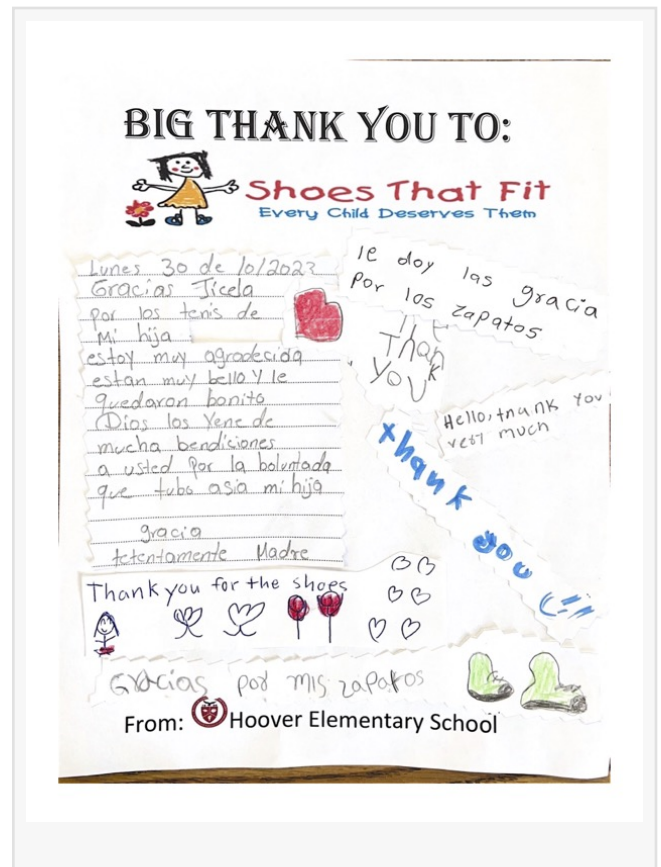 BIG THANK YOU TO:
Shoes That Fit
Every Child Deserves Them
Lunes 30 de 10/2023
Gracias Jicela
por los tenis de
Mi hija
estoy muy agradecida
estan muy bello Y le
quedaron bonito
Dios los Yene de
mucha bendiciones
a usted por la boluntada
que tubo asia mi hija
gracia
tetentamente Madre
le doy las gracia
por los zapatos
Thank
you
Hello, thank You
very much
thank you
Thank you for the shoes
Gracias por mis zapatos
From: Hoover Elementary School